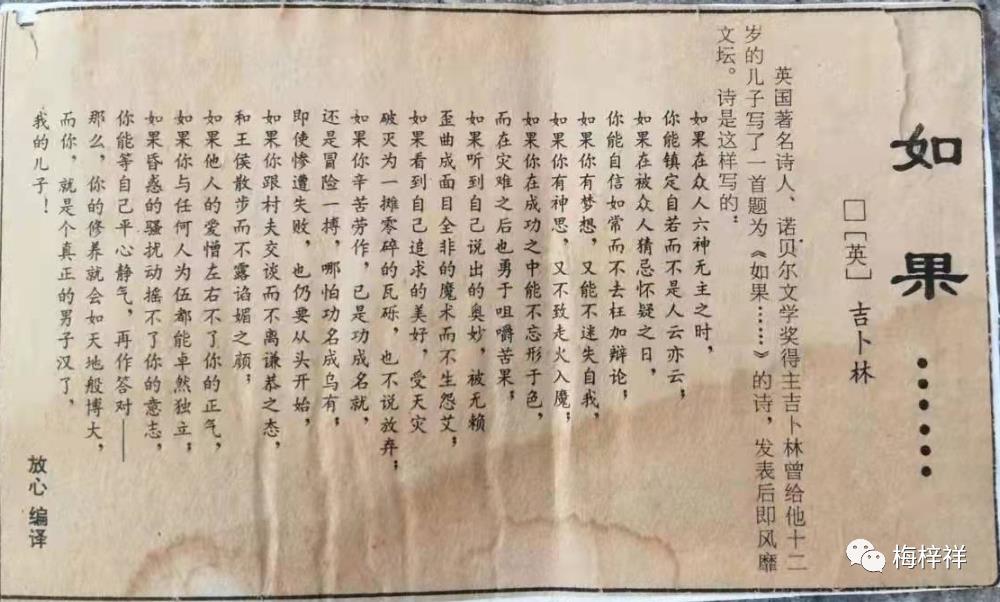 如果……
□〔英〕吉卜林
英国著名诗人、诺贝尔文学奖得主吉卜林曾给他十二
岁的儿子写了一首题为《如果……》的诗，发表后即风靡
文坛。诗是这样写的：
如果在众人六神无主之时，
你能镇定自若而不是人云亦云；
如果在被众人猜忌怀疑之日，
你能自信如常而不去枉加辩论；
如果你有梦想，又能不迷失自我，
如果你有神思，又不致走火入魔；
如果你在成功之中能不忘形于色，
而在灾难之后也勇于咀嚼苦果；
如果听到自己说出的奥妙，被无赖
歪曲成面目全非的魔术而不生怨艾；
如果看到自己追求的美好，受天灾
破灭为一摊零碎的瓦砾，也不说放弃；
如果你辛苦劳作，已是功成名就，
还是冒险一搏，哪怕功名成乌有；
即使惨遭失败，也仍要从头开始，
如果你跟村夫交谈而不离谦恭之态，
和王侯散步而不露谄媚之颜；
如果他人的爱憎左右不了你的正气，
如果你与任何人为伍都能卓然独立；
如果昏惑的骚扰动摇不了你的意志，
你能等自己平心静气，再作答对——
那么，你的修养就会如天地般博大，
而你，就是个真正的男子汉了，
我的儿子！
放心 编译
梅梓祥